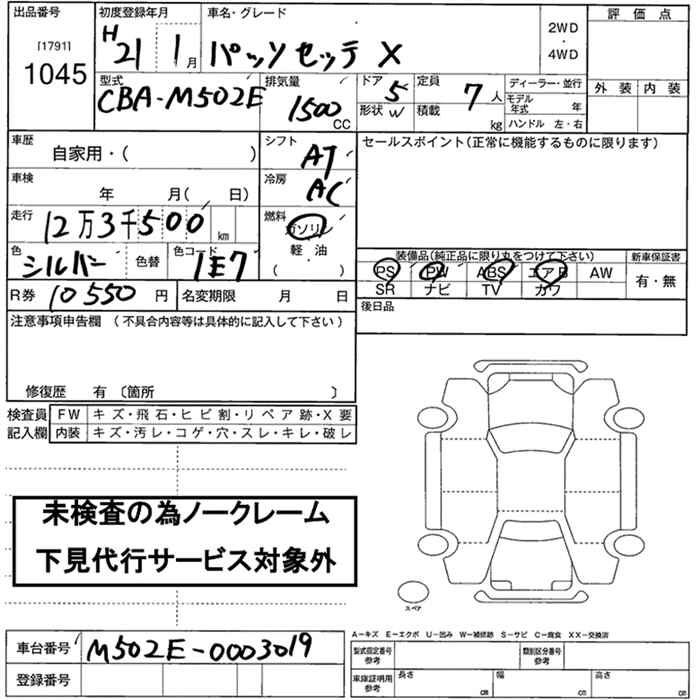 出品番号
[1791]
1045
初度登録年月
H21 1月
車名・グレード
パッソセッテ X
2WD
・
4WD
評価点
外装 内装
型式
CBA-M502E
排気量
1500
CC
ドア 5
形状 W
定員 7人
積載 kg
ディーラー・並行
モデル年式 年
ハンドル 左・右
車歴
自家用・( )
シフト
AT
セールスポイント(正常に機能するものに限ります)
車検
年 月( 日)
冷房
AC
走行
12万3千500 km
燃料
ガソリン
軽・油
( )
色
シルバー
色替
色コード
1E7
装備品(純正品に限り丸をつけて下さい)
新車保証書
PS PW ABS エアB AW
SR ナビ TV カワ
有・無
R券 10550 円
名変期限 月 日
後日品
注意事項申告欄 (不具合内容等は具体的に記入して下さい)
修復歴 有 〔箇所 〕
検査員
記入欄
FW キズ・飛石・ヒビ割・リペア跡・X要
内装 キズ・汚レ・コゲ・穴・スレ・キレ・破レ
未検査の為ノークレーム
下見代行サービス対象外
スペア
A−キズ E−エクボ U−凹み W−補修跡 S−サビ C−腐食 XX−交換済
車台番号 M502E-0003019
登録番号
型式指定番号
参考
類別区分番号
参考
車庫証明用
参考
長さ cm
幅 cm
高さ cm